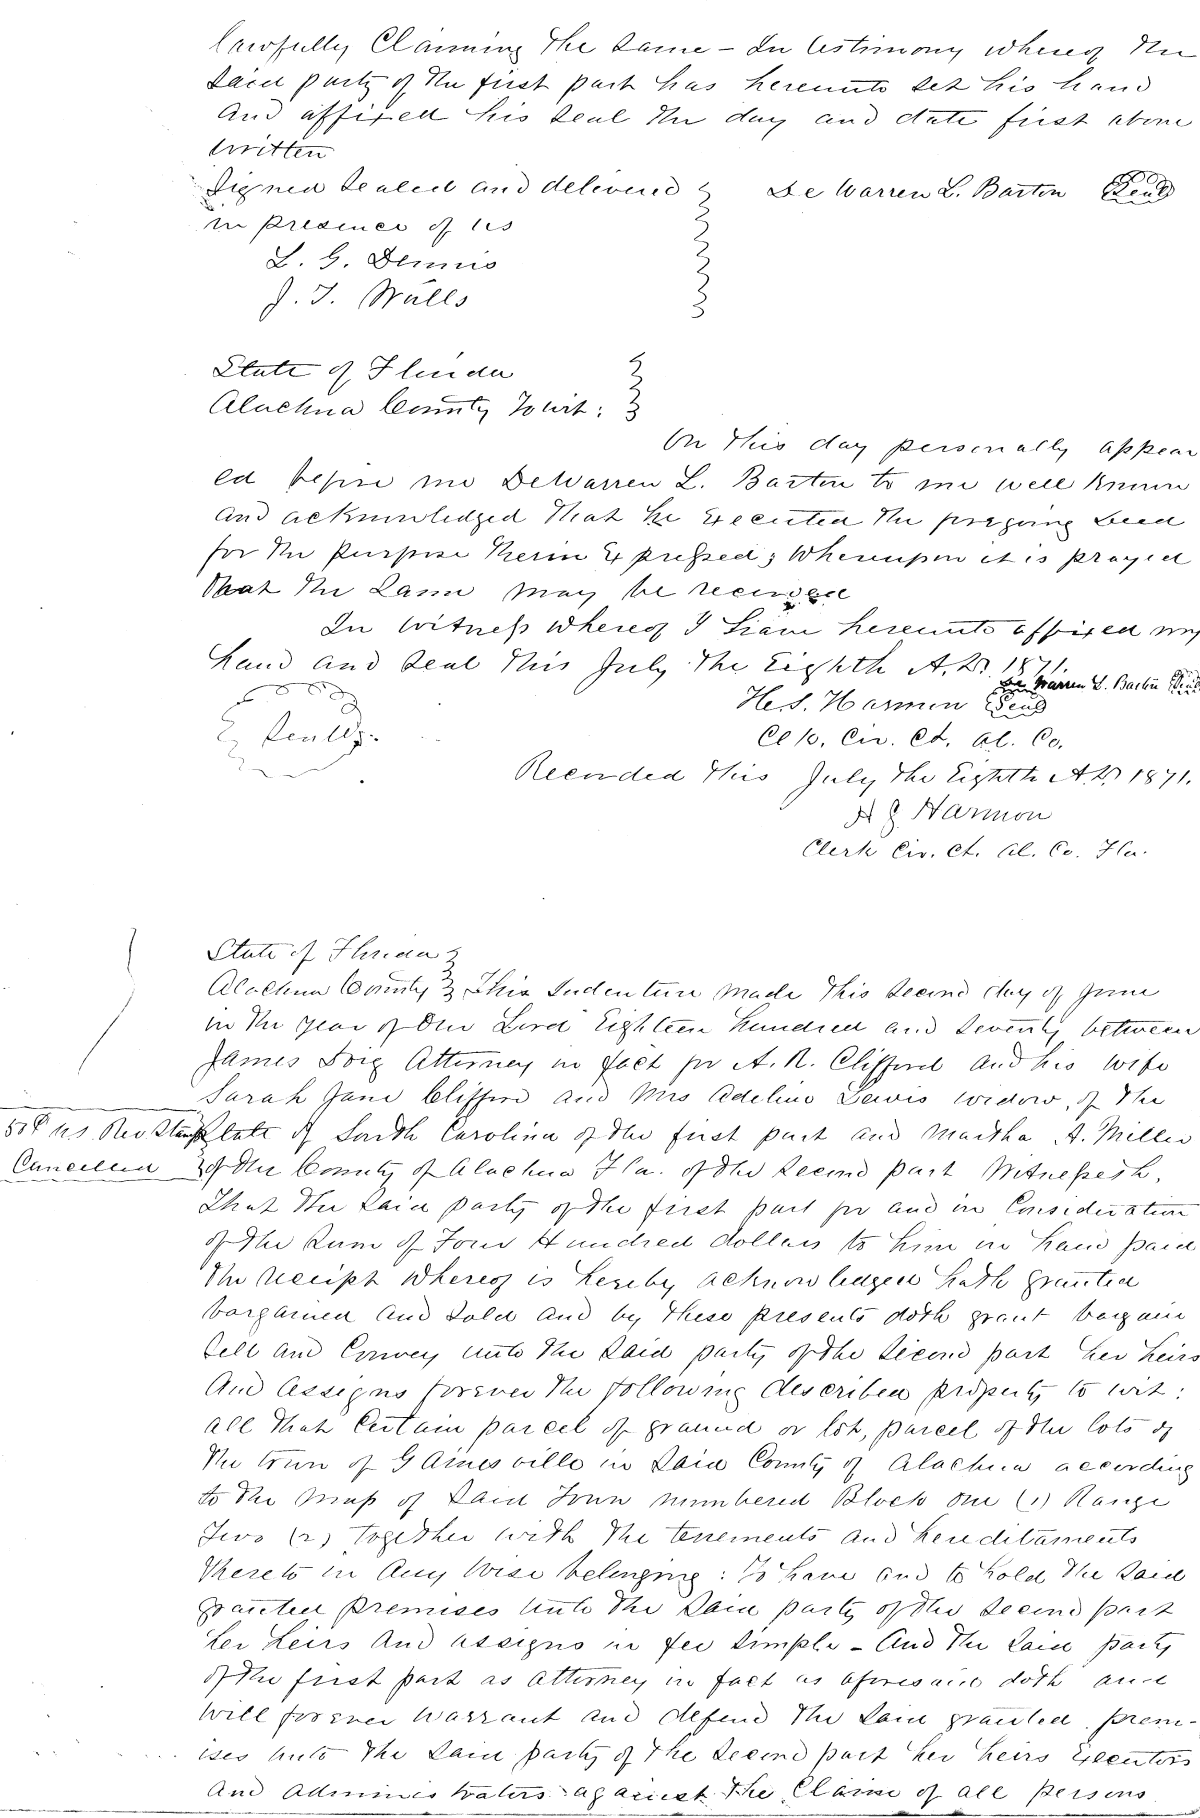 lawfully Claiming the same – In testimony whereof the
said party of the first part has hereunto set his hand
and affixed his seal the day and date first above
written
Signed sealed and delivered
De Warren L. Barton Seal
in presence of us
L. G. Dennis
J. T. Walls
State of Florida
Alachua County Towit:
On this day personally appear
ed before me DeWarren L. Barton to me well known
and acknowledged that he executed the foregoing deed
for the purpose therin Expressed; Whereupon it is prayed
that the same may be recorded
In witness whereof I have hereunto affixed my
hand and seal this July the Eighth A.D. 1871.
De Warren L. Barton Seal
H. S. Harmon Seal
Seal
Clk. Cir. Ct. Al. Co.
Recorded this July the Eighth A.D. 1871.
H S Harmon
Clerk Cir. Ct. Al. Co. Fla.
State of Florida
Alachua County This Indenture made this second day of June
in the year of Our Lord Eighteen hundred and seventy between
James Doig Attorney in fact for A. R. Clifford and his wife
Sarah Jane Clifford and Mrs Adeline Lewis widow, of the
50¢ US Rev Stamp
State of South Carolina of the first part and Martha A. Miller
Cancelled
of the County of Alachua Fla. of the second part Witnesseth,
That the said party of the first part for and in Consideration
of the sum of Four Hundred dollars to him in hand paid
the receipt whereof is hereby acknowledged hath granted
bargained and sold and by these presents doth grant bargain
sell and Convey unto the said party of the second part her heirs
and assigns forever the following described property to wit:
all that Certain parcel of ground or lot, parcel of the lots of
the town of Gainesville in said County of Alachua according
to the map of said Town numbered Block One (1) Range
Two (2) together with the tenements and hereditaments
thereto in any wise belonging: To have and to hold the said
granted premises unto the said party of the second part
her heirs and assigns in fee simple – And the said party
of the first part as attorney in fact as aforesaid doth and
will forever warrant and defend the said granted prem-
ises unto the said party of the second part her heirs Executors
and administrators against the Claims of all persons